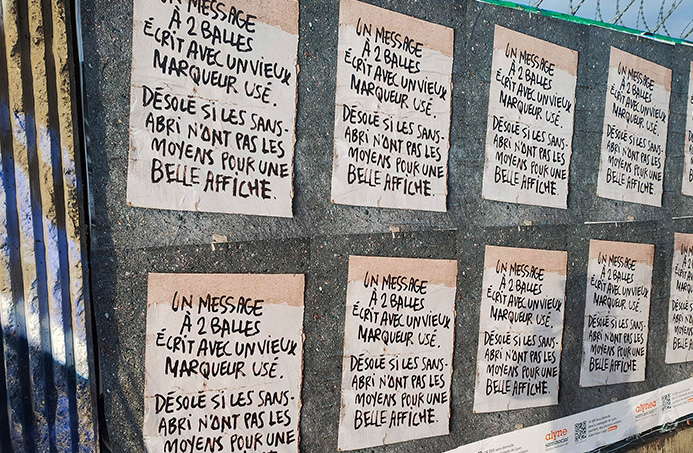 UN MESSAGE
À 2 BALLES
ÉCRIT AVEC UN VIEUX
MARQUEUR USÉ.
DÉSOLÉ SI LES SANS-
ABRI N'ONT PAS LES
MOYENS POUR UNE
BELLE AFFICHE.
UN MESSAGE
À 2 BALLES
ÉCRIT AVEC UN VIEUX
MARQUEUR USÉ.
DÉSOLÉ SI LES SANS-
ABRI N'ONT PAS LES
MOYENS POUR UNE
BELLE AFFICHE.
UN MESSAGE
À 2 BALLES
ÉCRIT AVEC UN VIEUX
MARQUEUR USÉ.
DÉSOLÉ SI LES SANS-
ABRI N'ONT PAS LES
MOYENS POUR UNE
BELLE AFFICHE.
UN MESSAGE
À 2 BALLES
ÉCRIT AVEC UN VIEUX
MARQUEUR USÉ.
DÉSOLÉ SI LES SANS-
ABRI N'ONT PAS LES
MOYENS POUR UNE
BELLE AFFICHE.
UN MESSAGE
À 2 BALLES
ÉCRIT AVEC UN VIEUX
MARQUEUR USÉ.
DÉSOLÉ SI LES SANS-
ABRI N'ONT PAS LES
MOYENS POUR UNE
UN MESSAGE
À 2 BALLES
ÉCRIT AVEC UN VIEUX
MARQUEUR USÉ.
DÉSOLÉ SI LES SANS-
ABRI N'ONT PAS LES
MOYENS POUR UNE
BELLE AFFICHE.
UN MESSAGE
À 2 BALLES
ÉCRIT AVEC UN VIEUX
MARQUEUR USÉ.
DÉSOLÉ SI LES SANS-
ABRI N'ONT PAS LES
MOYENS POUR UNE
BELLE AFFICHE.
UN MESSAGE
À 2 BALLES
ÉCRIT AVEC UN VIEUX
MARQUEUR USÉ.
DÉSOLÉ SI LES SANS-
ABRI N'ONT PAS LES
MOYENS POUR UNE
BELLE AFFICHE.
alynea
alynea